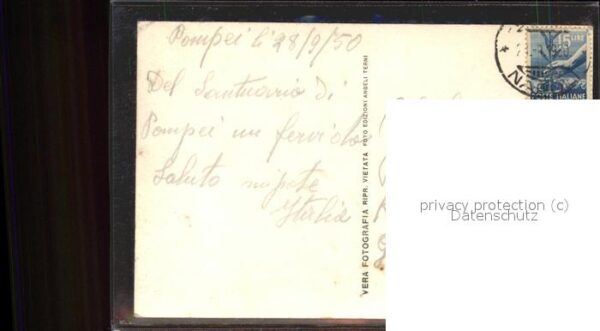 Pompei li 28/9/50
Del Santuario di
Pompei un fervido
Saluto nipote
Italia
VERA FOTOGRAFIA RIPR. VIETATA FOTO EDIZIONI ANGELI TERNI
15 LIRE
NA
TE ITALIANE
privacy protection (c)
Datenschutz